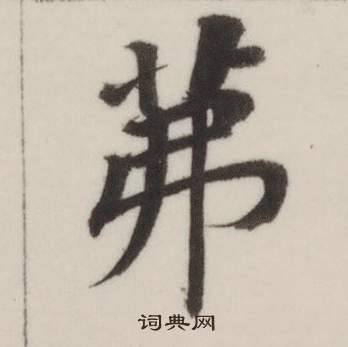 茀
词典网